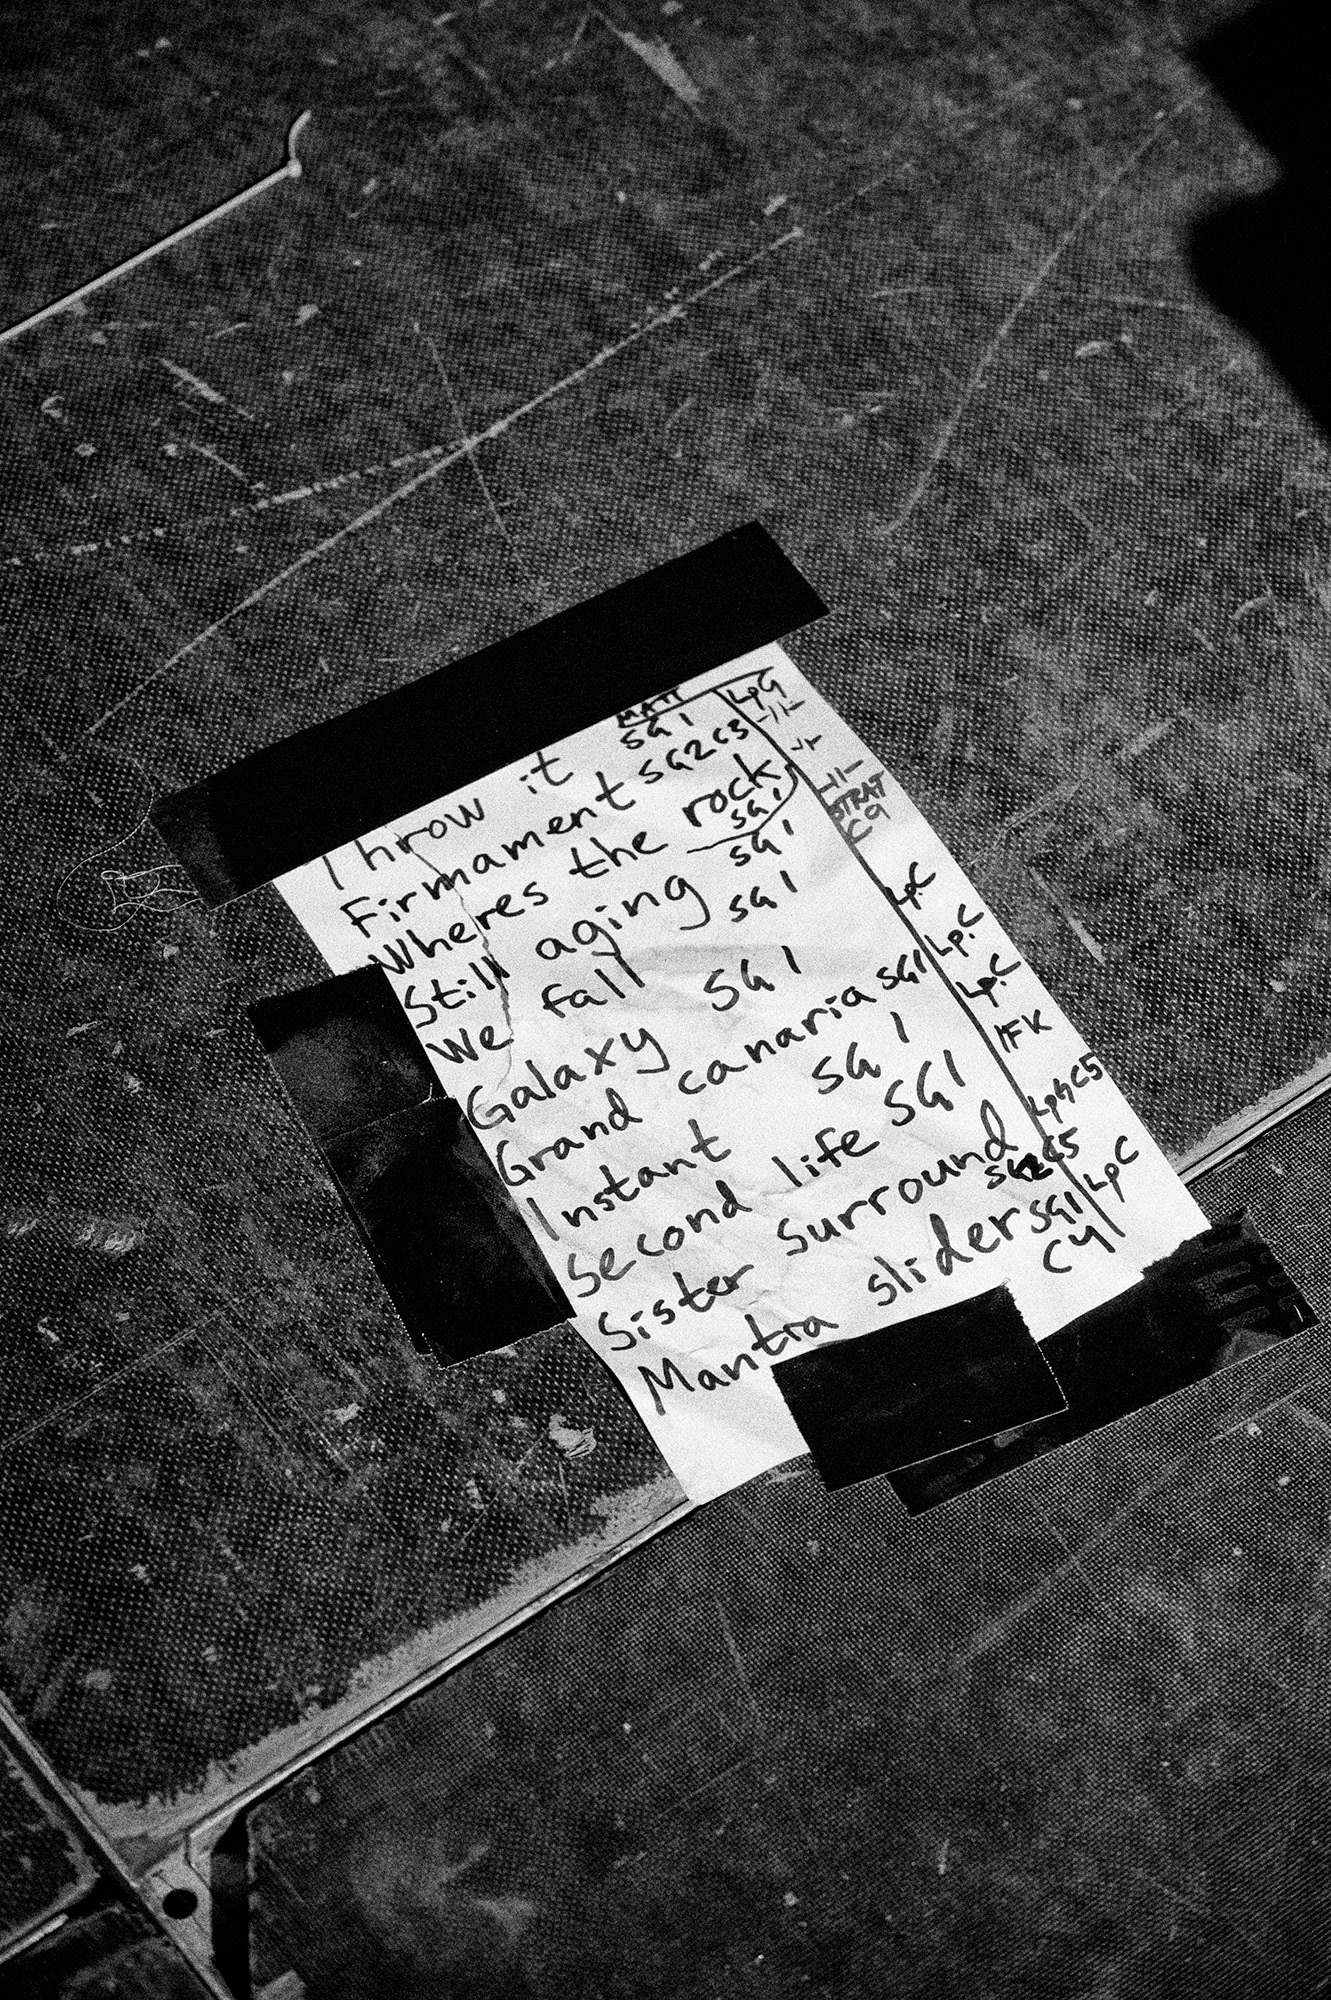 MATT LPG
Throw it SG1 -11-
Firmament SG2 C3
Wheres the rock SG1 -11-
Still aging SG1 STRAT C9
We fall SG1
Galaxy SG1 LP.C
Grand canaria SG1 LP.C
Instant SG1 LP.C
Second life SG1 IFK
Sister Surround C5 LPG C5
Mantra slider SG1 LPC
C4